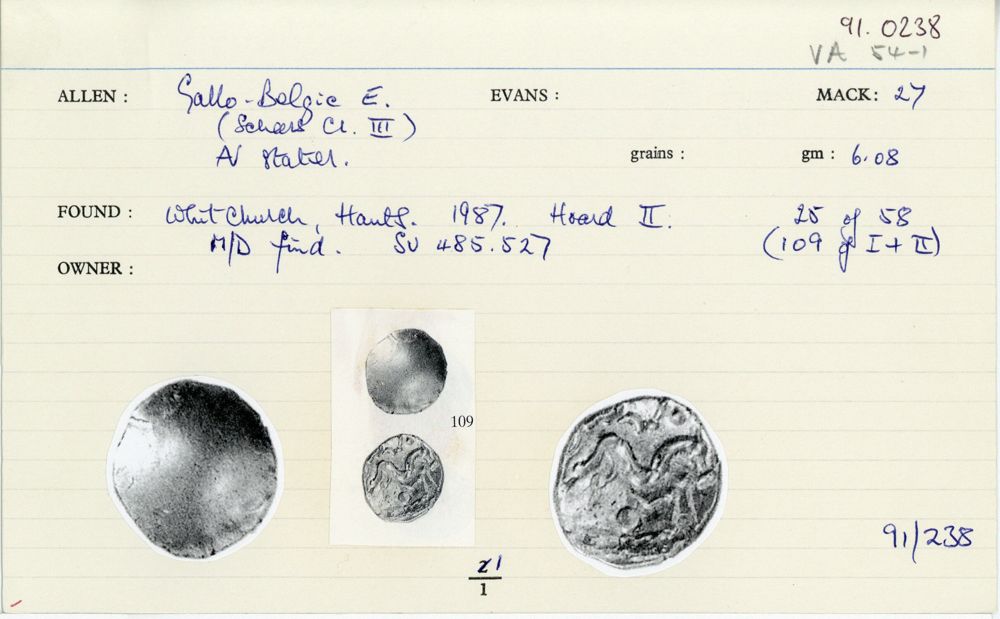 91.0238
VA 54-1
ALLEN : Gallo-Belgic E. EVANS : MACK: 27
(Scheers Cl. III)
AV stater. grains : gm : 6.08
FOUND : Whitchurch, Hants. 1987. Hoard II. 25 of 58
M/D find. SU 485.527 (109 of I + II)
OWNER :
109
91/238
1